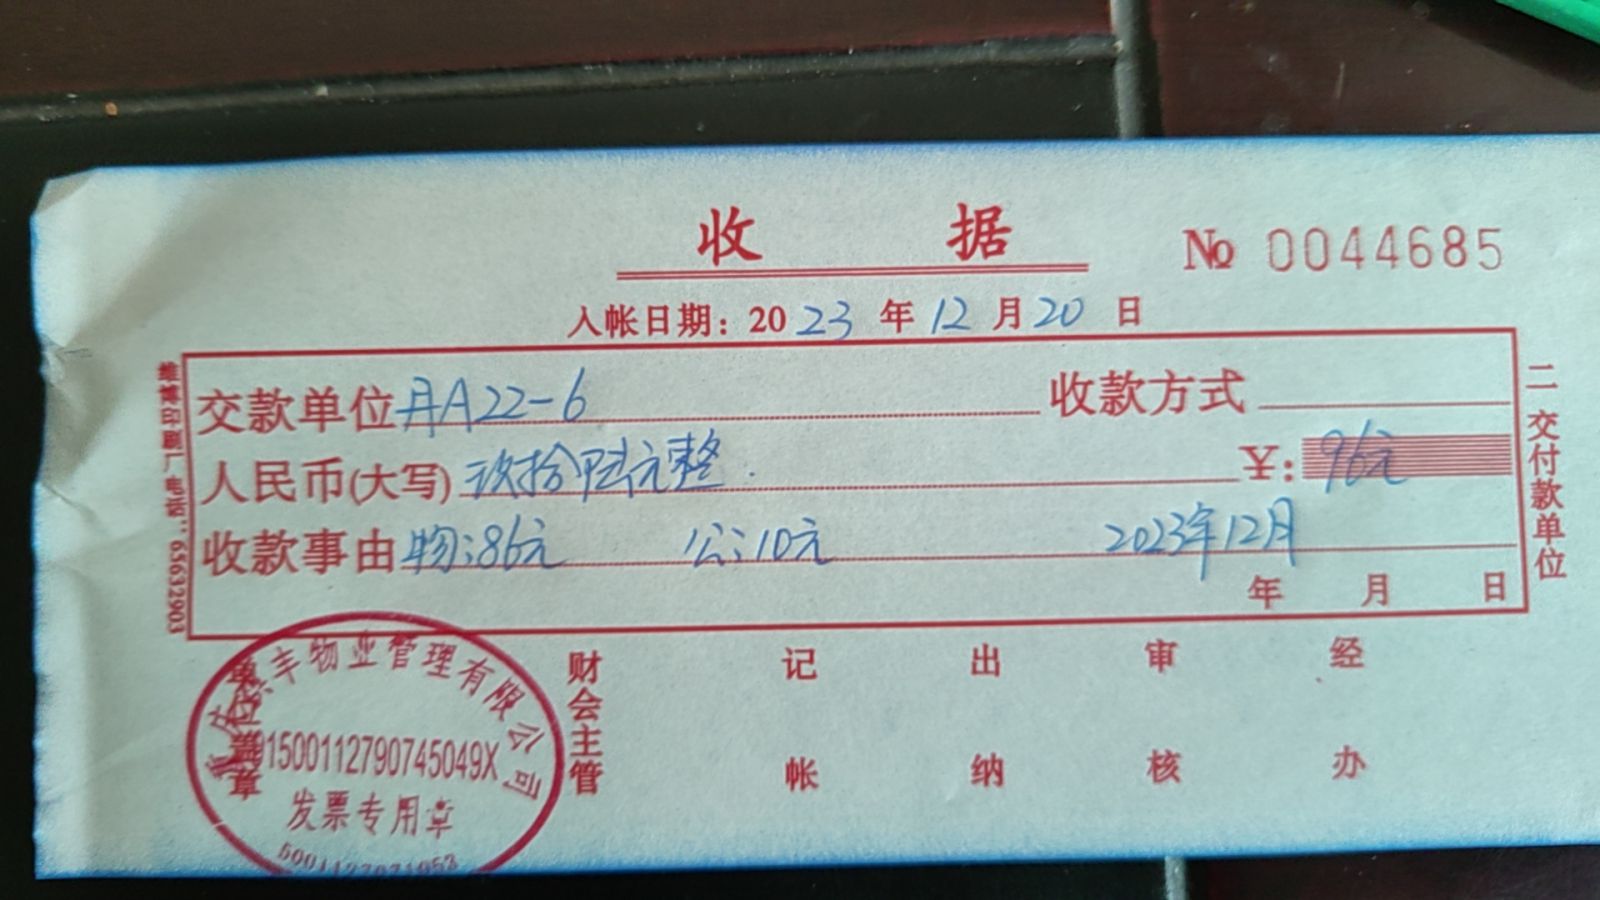 收 据
№ 0044685
入帐日期：2023年12月20日
交款单位 丹A22-6 收款方式
人民币(大写) 玖拾陆元整. ￥: 96元
收款事由 物:86元 公:10元 2023年12月
年 月 日
二交付款单位
维博印刷厂电话：65632903
财会主管 记帐 出纳 审核 经办
丰物业管理有限公司
91500112790745049X
发票专用章